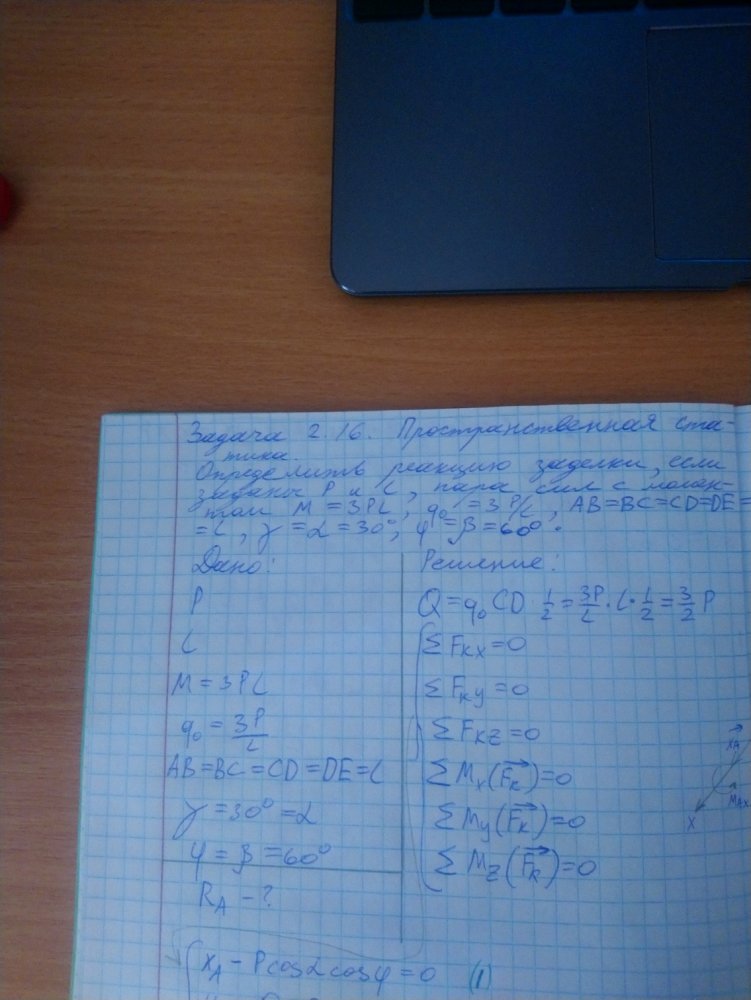 Задача 2.16. Пространственная ста-
тика.
Определить реакцию заделки, если
заданы P и L, пара сил с момен-
том M = 3PL, q₀ = 3P/L, AB=BC=CD=DE=
=L, γ = α = 30°, φ = β = 60°.
Дано:
P
L
M = 3PL
q₀ = 3P/L
AB=BC=CD=DE=L
γ = 30° = α
φ = β = 60°
R_A - ?
Решение:
Q = q₀ CD 1/2 = 3P/L · L · 1/2 = 3/2 P
ΣF_kx = 0
ΣF_ky = 0
ΣF_kz = 0
ΣM_x(F_k) = 0
ΣM_y(F_k) = 0
ΣM_z(F_k) = 0
X_A
M_Ax
X
X_A - P cosα cosφ = 0 (1)